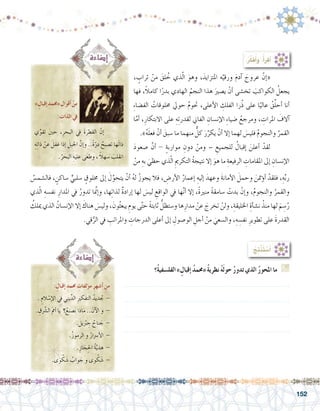 أقرأ وأفكر
«إنّ عروجَ آدمَ ورقيَّه المتزايدَ، وهوَ الّذي خُلقَ منْ ترابٍ،
يجعلُ الكواكبَ تخشى أنْ يصيرَ هذا النجمُ الهاديَ بدرًا كاملًا، فها
أنا أحلّقُ عاليًا على ذُرا الفلكِ الأعلى، تحومُ حولي مخلوقاتُ الفضاءِ
آلافَ المراتِ، ومرجعُ ضياءِ الإنسانِ الفاني لقدرتِه على الابتكارِ، أمّا
القمرُ والنجومُ فليسَ لهما إلّا أنْ يكرّرَ كلٌّ منهما ما سبقَ أنْ فعلَه».
لقدْ أعلنَ إقبالُ للجميعِ - ومنْ دونِ مواربةٍ - أنّ صعودَ
الإنسانِ إلى المقاماتِ الرفيعةِ ما هوَ إلّا نتيجةُ التكريمِ الّذي حظيَ بهِ منْ
ربِّه، فلقدْ أوهنَ وحملَ الأمانةَ وعهدَ إليهِ إعمارُ الأرضِ، فلا يجوزُ لهُ
أنْ يتحوّلَ إلى مخلوقٍ سلبيٍّ ساكنٍ، فالشمسُ
والقمرُ والنجومُ، وإنْ بدتْ سامقةً منيرةً، إلّا أنّها في الواقعِ ليسَ لها إرادةٌ لذاتِها، وإنّما تدورُ في المدارِ نفسِه الّذي
رُسمَ لها منذُ نشأةِ الخليقةِ، ولنْ تخرجَ عنْ مدارِها وستظلُّ ثابتةً حتّى يومِ يبعثونَ، وليسَ هناكَ إلّا الإنسانُ الّذي يملكُ
القدرةَ على تطويرِ نفسِه، والسعيِ منْ أجلِ الوصولِ إلى أعلى الدرجاتِ والمراتبِ في الرقيِّ.
إضاءة
منْ أقوالِ «محمد إقبال»
في الذاتِ
إنّ القطرةَ في البحرِ، حين تقوّي
ذاتَها تصبحُ درّةً، وإنّ الجبلَ إذا غفلَ عنْ ذاتِه
انقلبَ سهلًا، وطغى عليهِ البحرُ.
أستنتج
ما المحورُ الّذي تدورُ حولَهُ نظريةُ «محمد إقبال» الفلسفيةُ؟
إضاءة
من أشهر مؤلفات محمد إقبال:
- تجديدُ التفكيرِ الدّينيِّ في الإسلامِ.
- و الآن.. ماذا نصنعُ؟ يا أممَ الشّرقِ.
- جناحُ جبريلَ.
- الأسرارُ و الرموزُ.
- هديّةُ الحجازِ.
- شكوى و جوابُ شكوى.
152